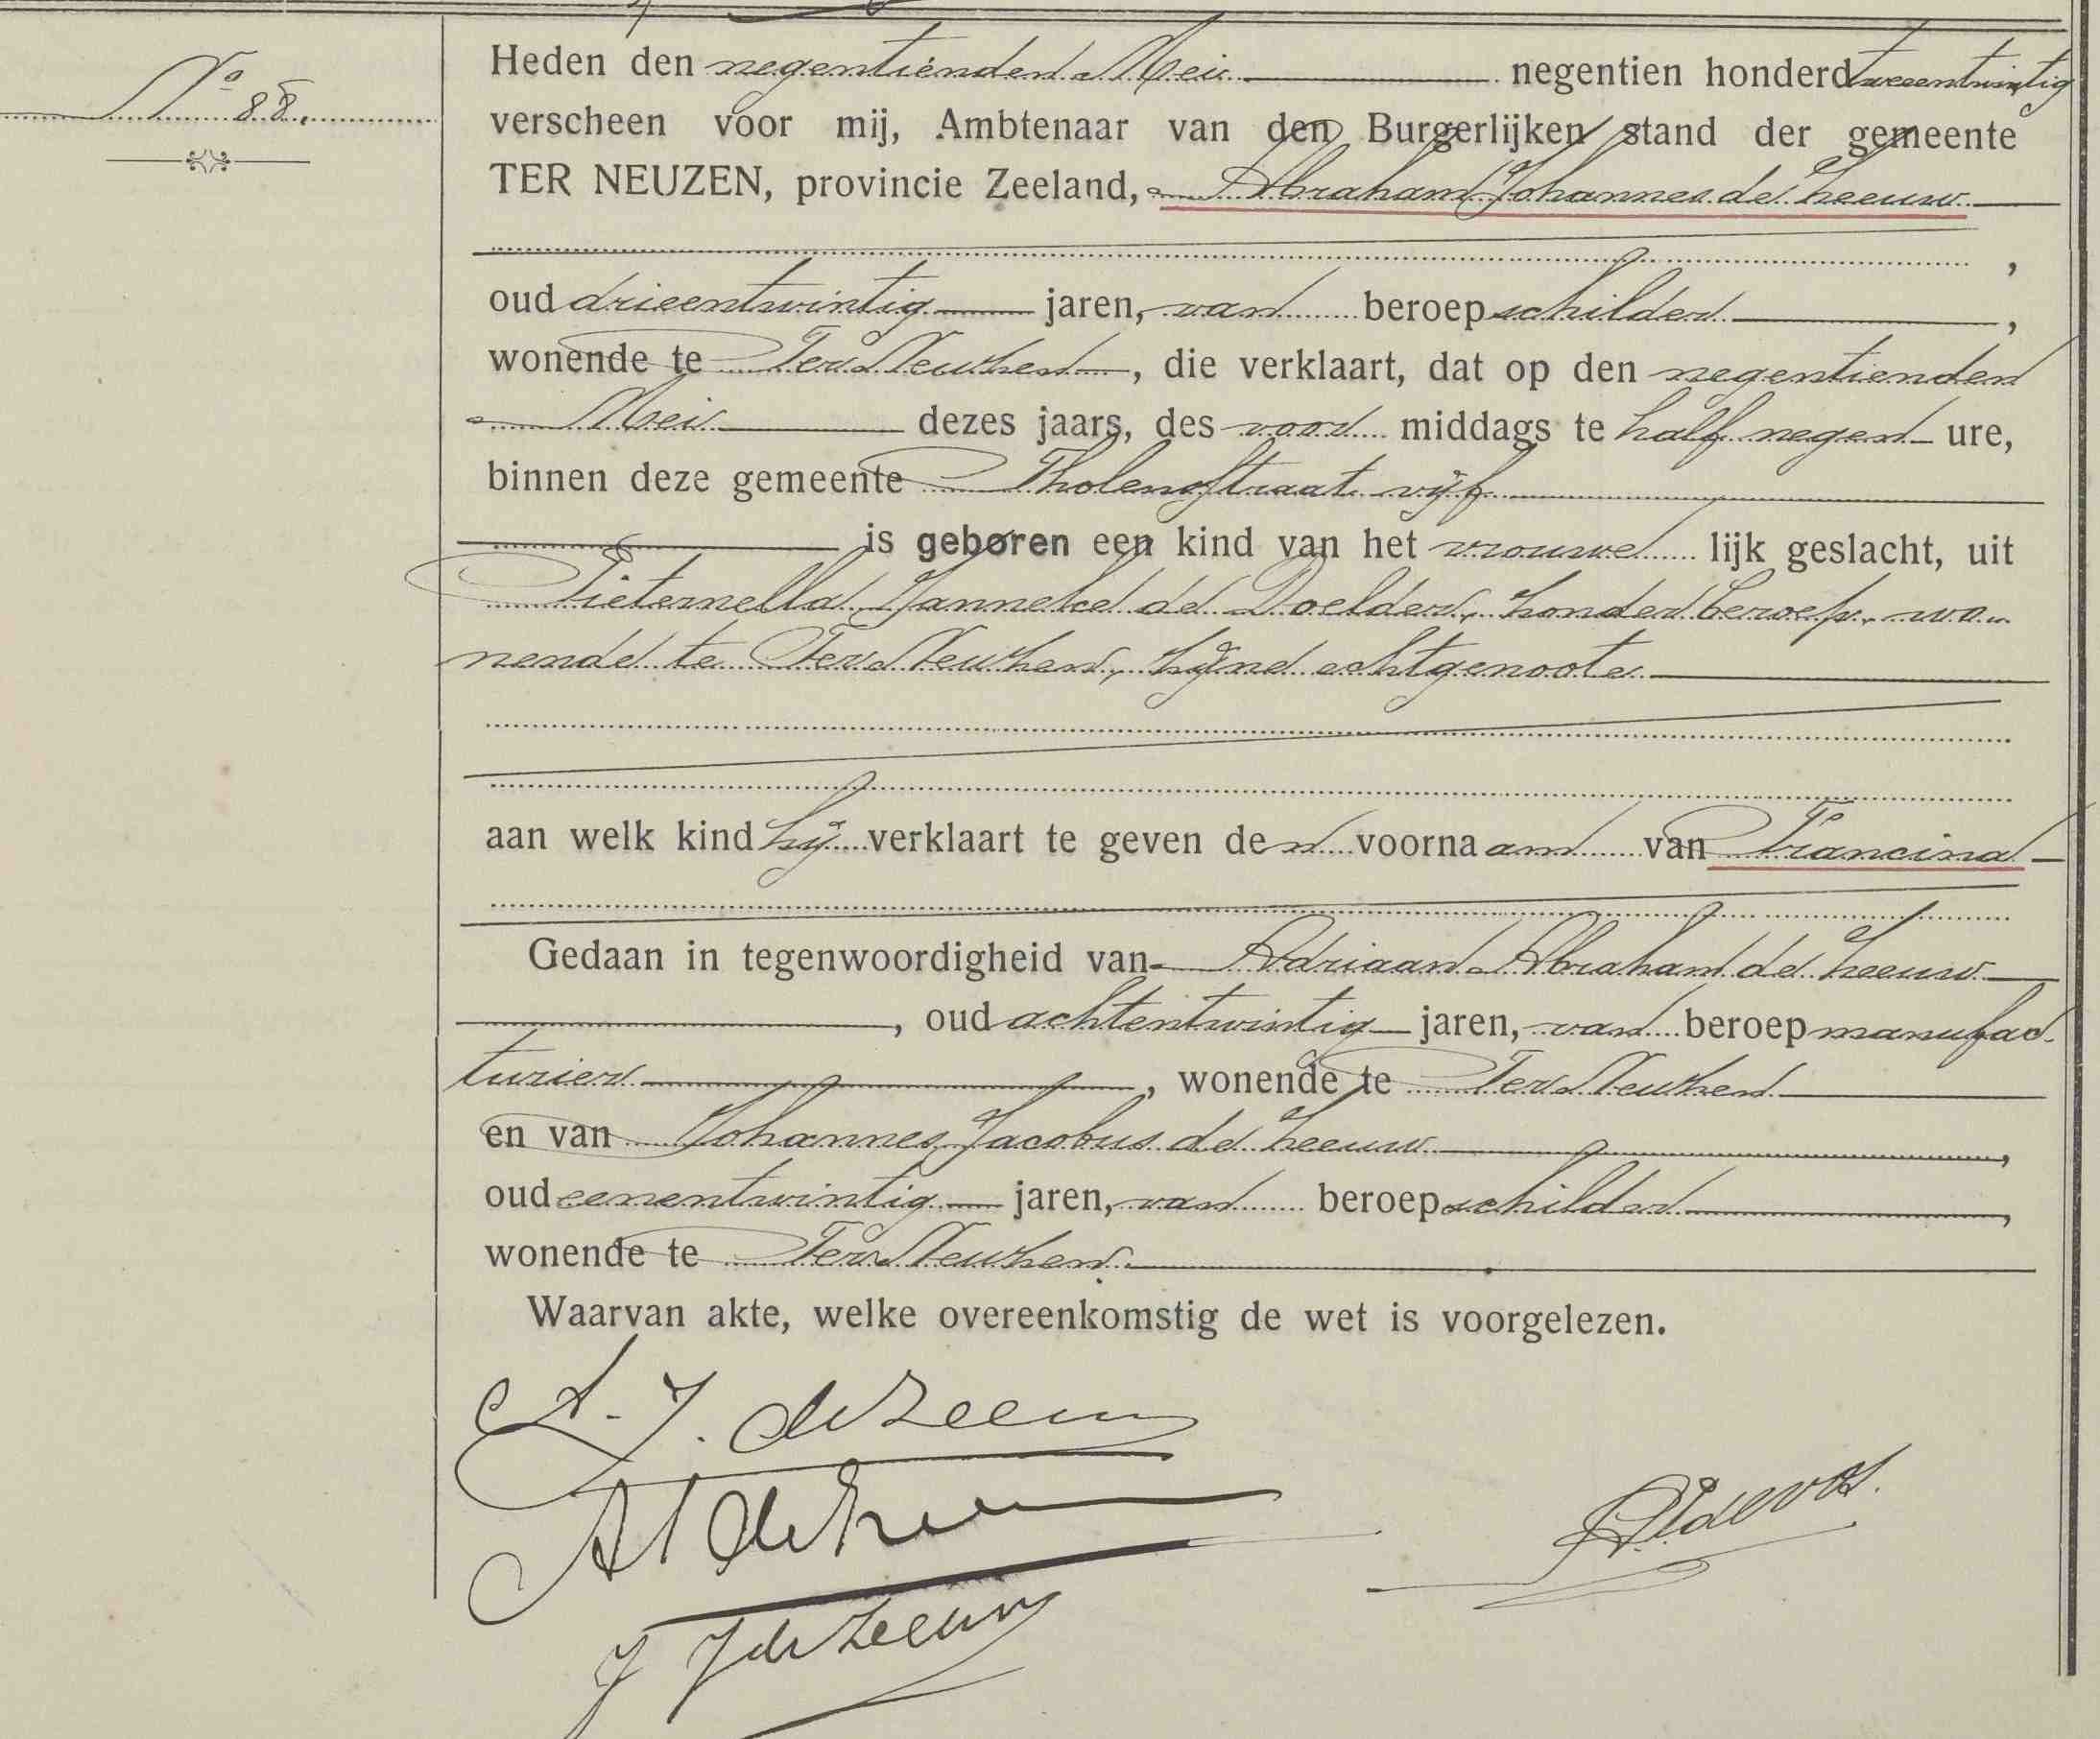 No 88.
Heden den negentienden Mei negentien honderd tweeentwintig
verscheen voor mij, Ambtenaar van den Burgerlijken stand der gemeente
TER NEUZEN, provincie Zeeland, Abraham Johannes de Zeeuw
,
oud drieentwintig jaren, van beroep schilder,
wonende te Ter Neuzen, die verklaart, dat op den negentienden
Mei dezes jaars, des voor middags te half negen ure,
binnen deze gemeente Tholensstraat vijf
is geboren een kind van het vrouwe lijk geslacht, uit
Pieternella Janneke de Doelder, zonder beroep, wo-
nende te Ter Neuzen, zijne echtgenoote
aan welk kind hij verklaart te geven den voornaam van Francina
Gedaan in tegenwoordigheid van Adriaan Abraham de Zeeuw
, oud achtentwintig jaren, van beroep manufac-
turier, wonende te Ter Neuzen
en van Johannes Jacobus de Zeeuw,
oud eenentwintig jaren, van beroep schilder,
wonende te Ter Neuzen.
Waarvan akte, welke overeenkomstig de wet is voorgelezen.
A. J. de Zeeuw
A A de Zeeuw
J J de Zeeuw